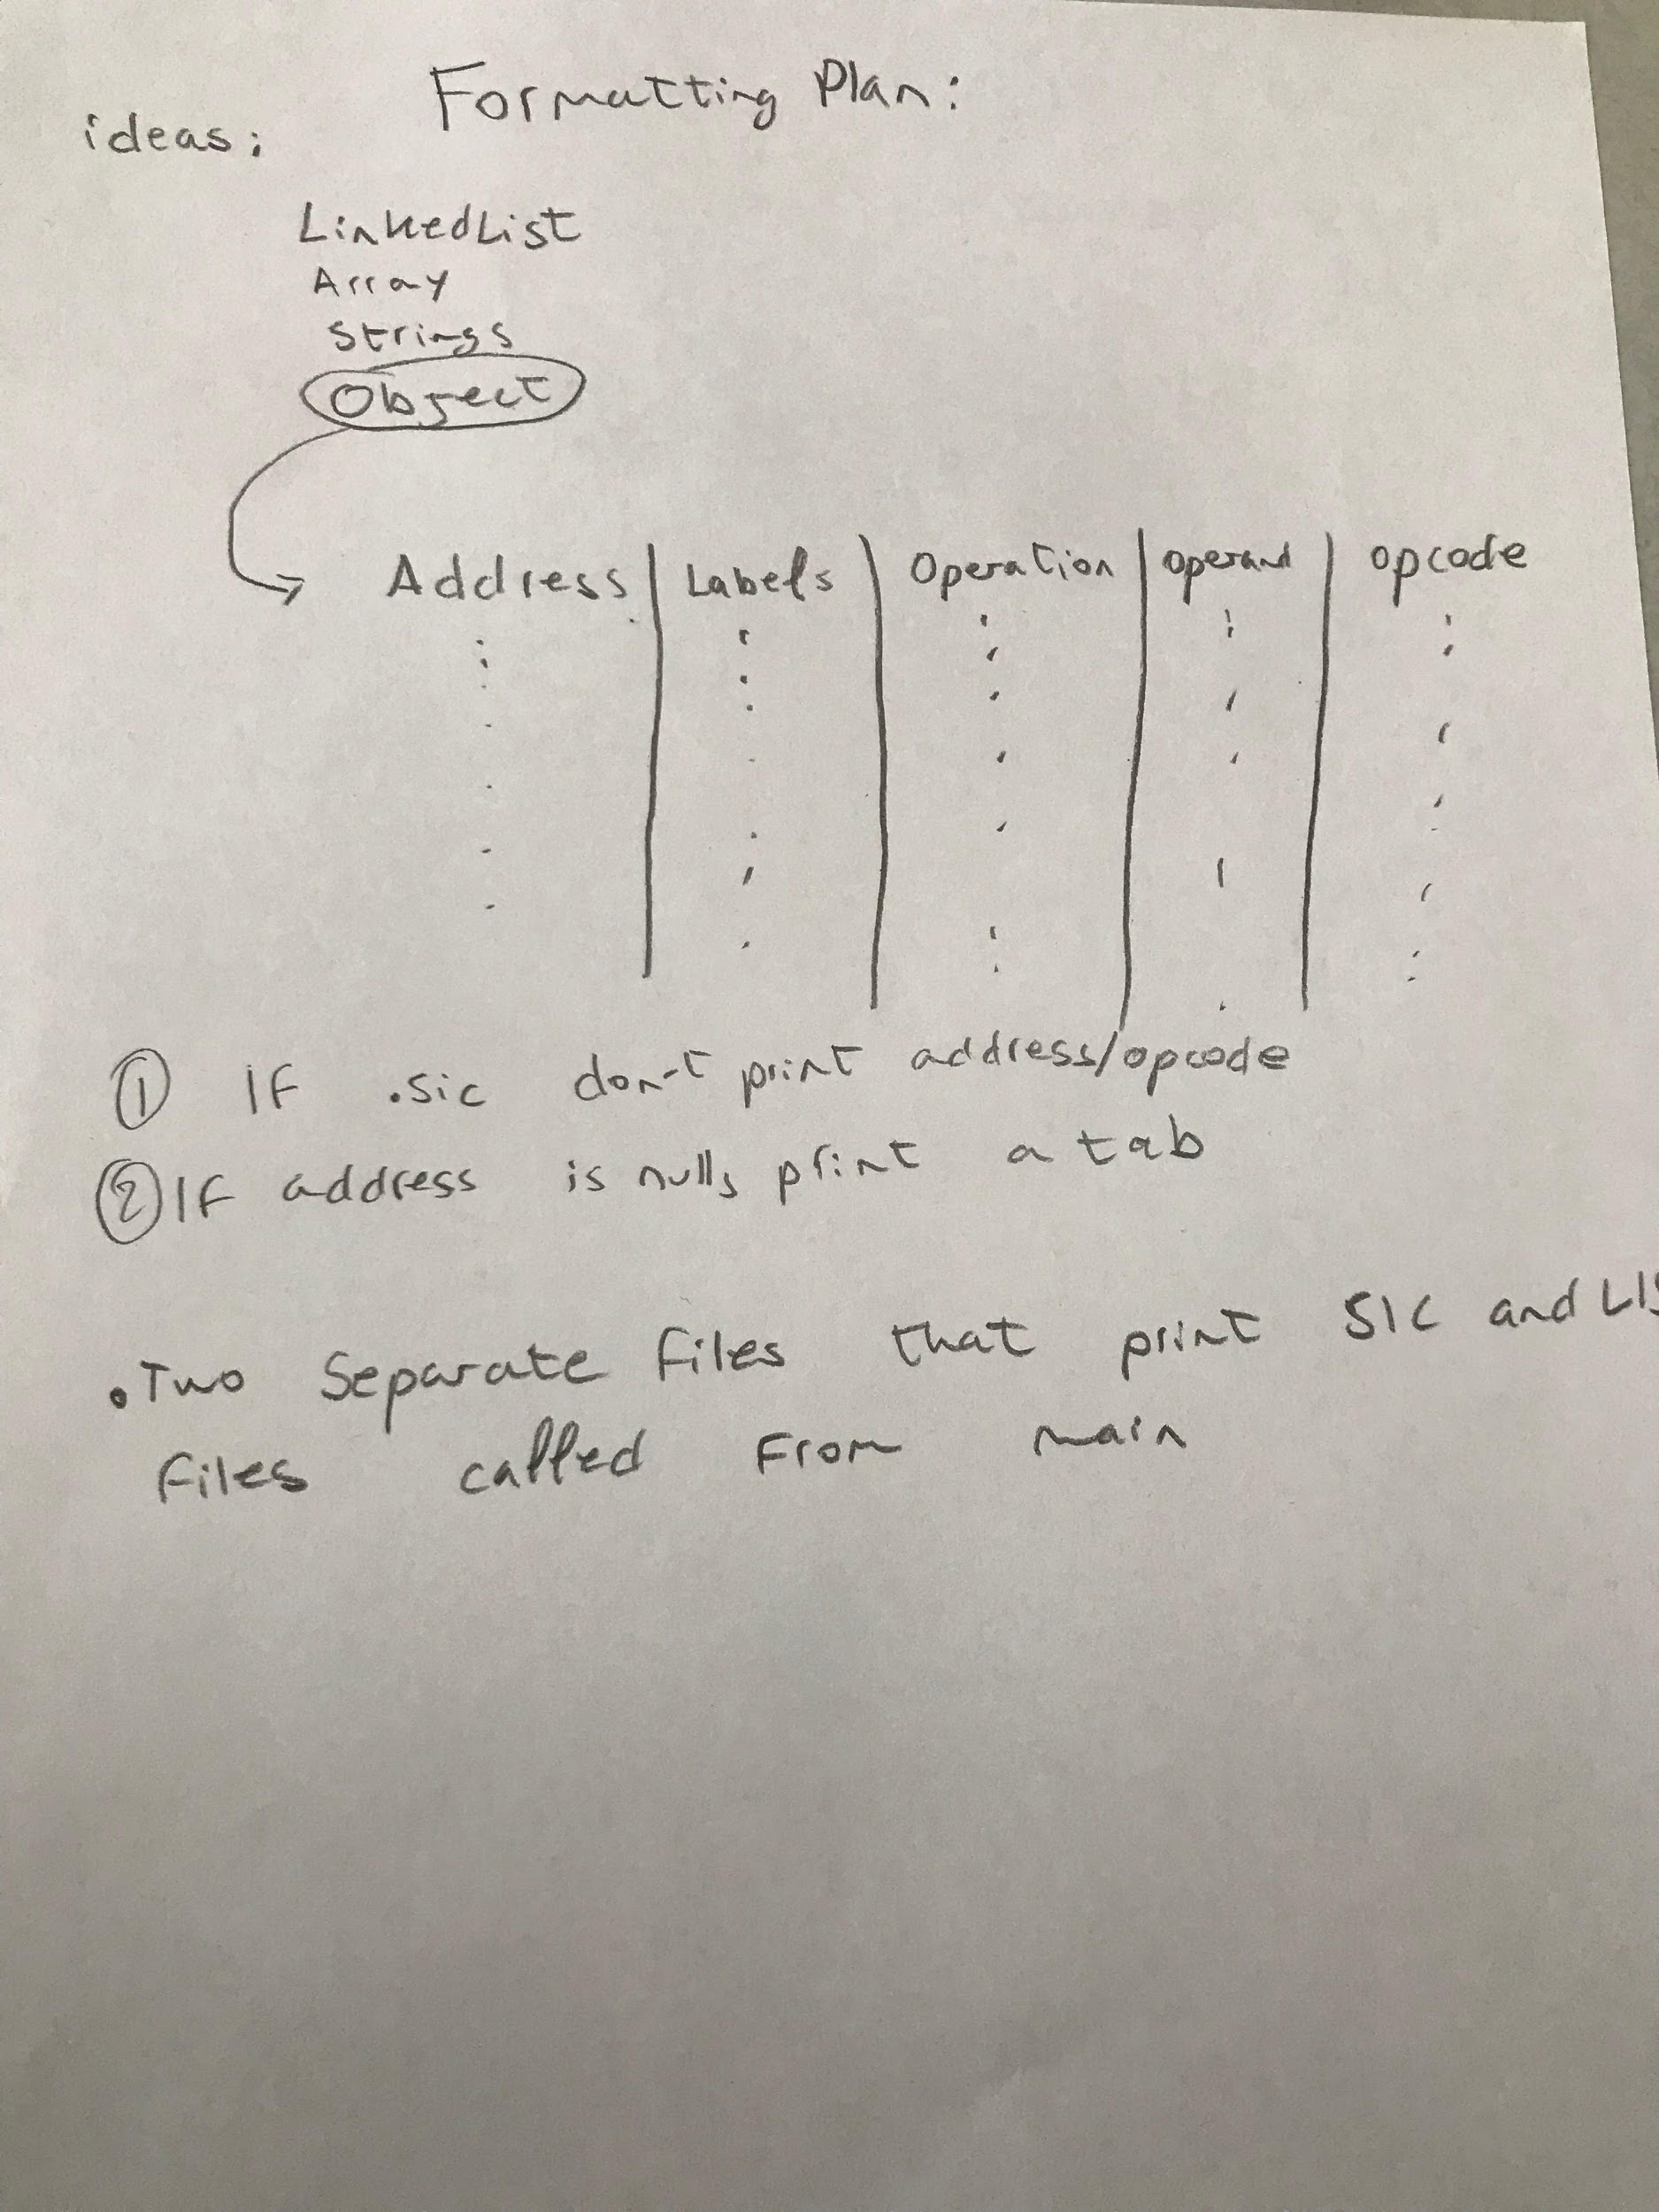 Formatting Plan:
ideas:
LinkedList
Array
Strings
Object
Address | Labels | Operation | operand | opcode
① IF .sic don't print address/opcode
② IF address is null, print a tab
• Two Separate files that print SIC and LIS
files called From main